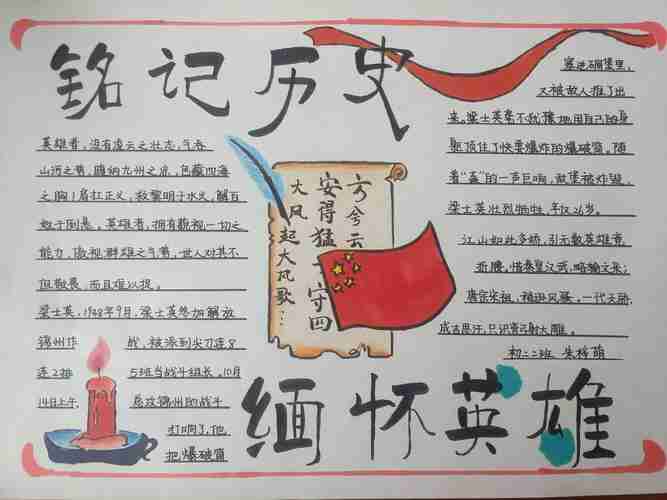 铭记历史
英雄者，没有凌云之壮志，气吞
山河之势，腹纳九州之量，包藏四海
之胸！肩扛正义，救黎明于水火，解百
姓于倒悬。英雄者，拥有藐视一切之
能力，傲视群雄之气势，世人对其不
但敬畏，而且难以捉。
梁士英，1948年9月，梁士英参加解放
锦州作战，被派到尖刀连8
连2排5班当战斗组长。10月
14日上午，总攻锦州的战斗
打响了，他
把爆破筒
塞进碉堡里，
又被敌人推了出
来。梁士英毫不犹豫地用自己的身
躯顶住了快要爆炸的爆破筒。随
着"轰"的一声巨响，敌堡被炸毁，
梁士英壮烈牺牲，年仅26岁。
江山如此多娇，引无数英雄竞
折腰，惜秦皇汉武，略输文采；
唐宗宋祖，稍逊风骚。一代天骄，
成吉思汗，只识弯弓射大雕。
初二二班 朱梓萌
兮兮云
安得猛 守四
大风起大风歌…
缅怀英雄